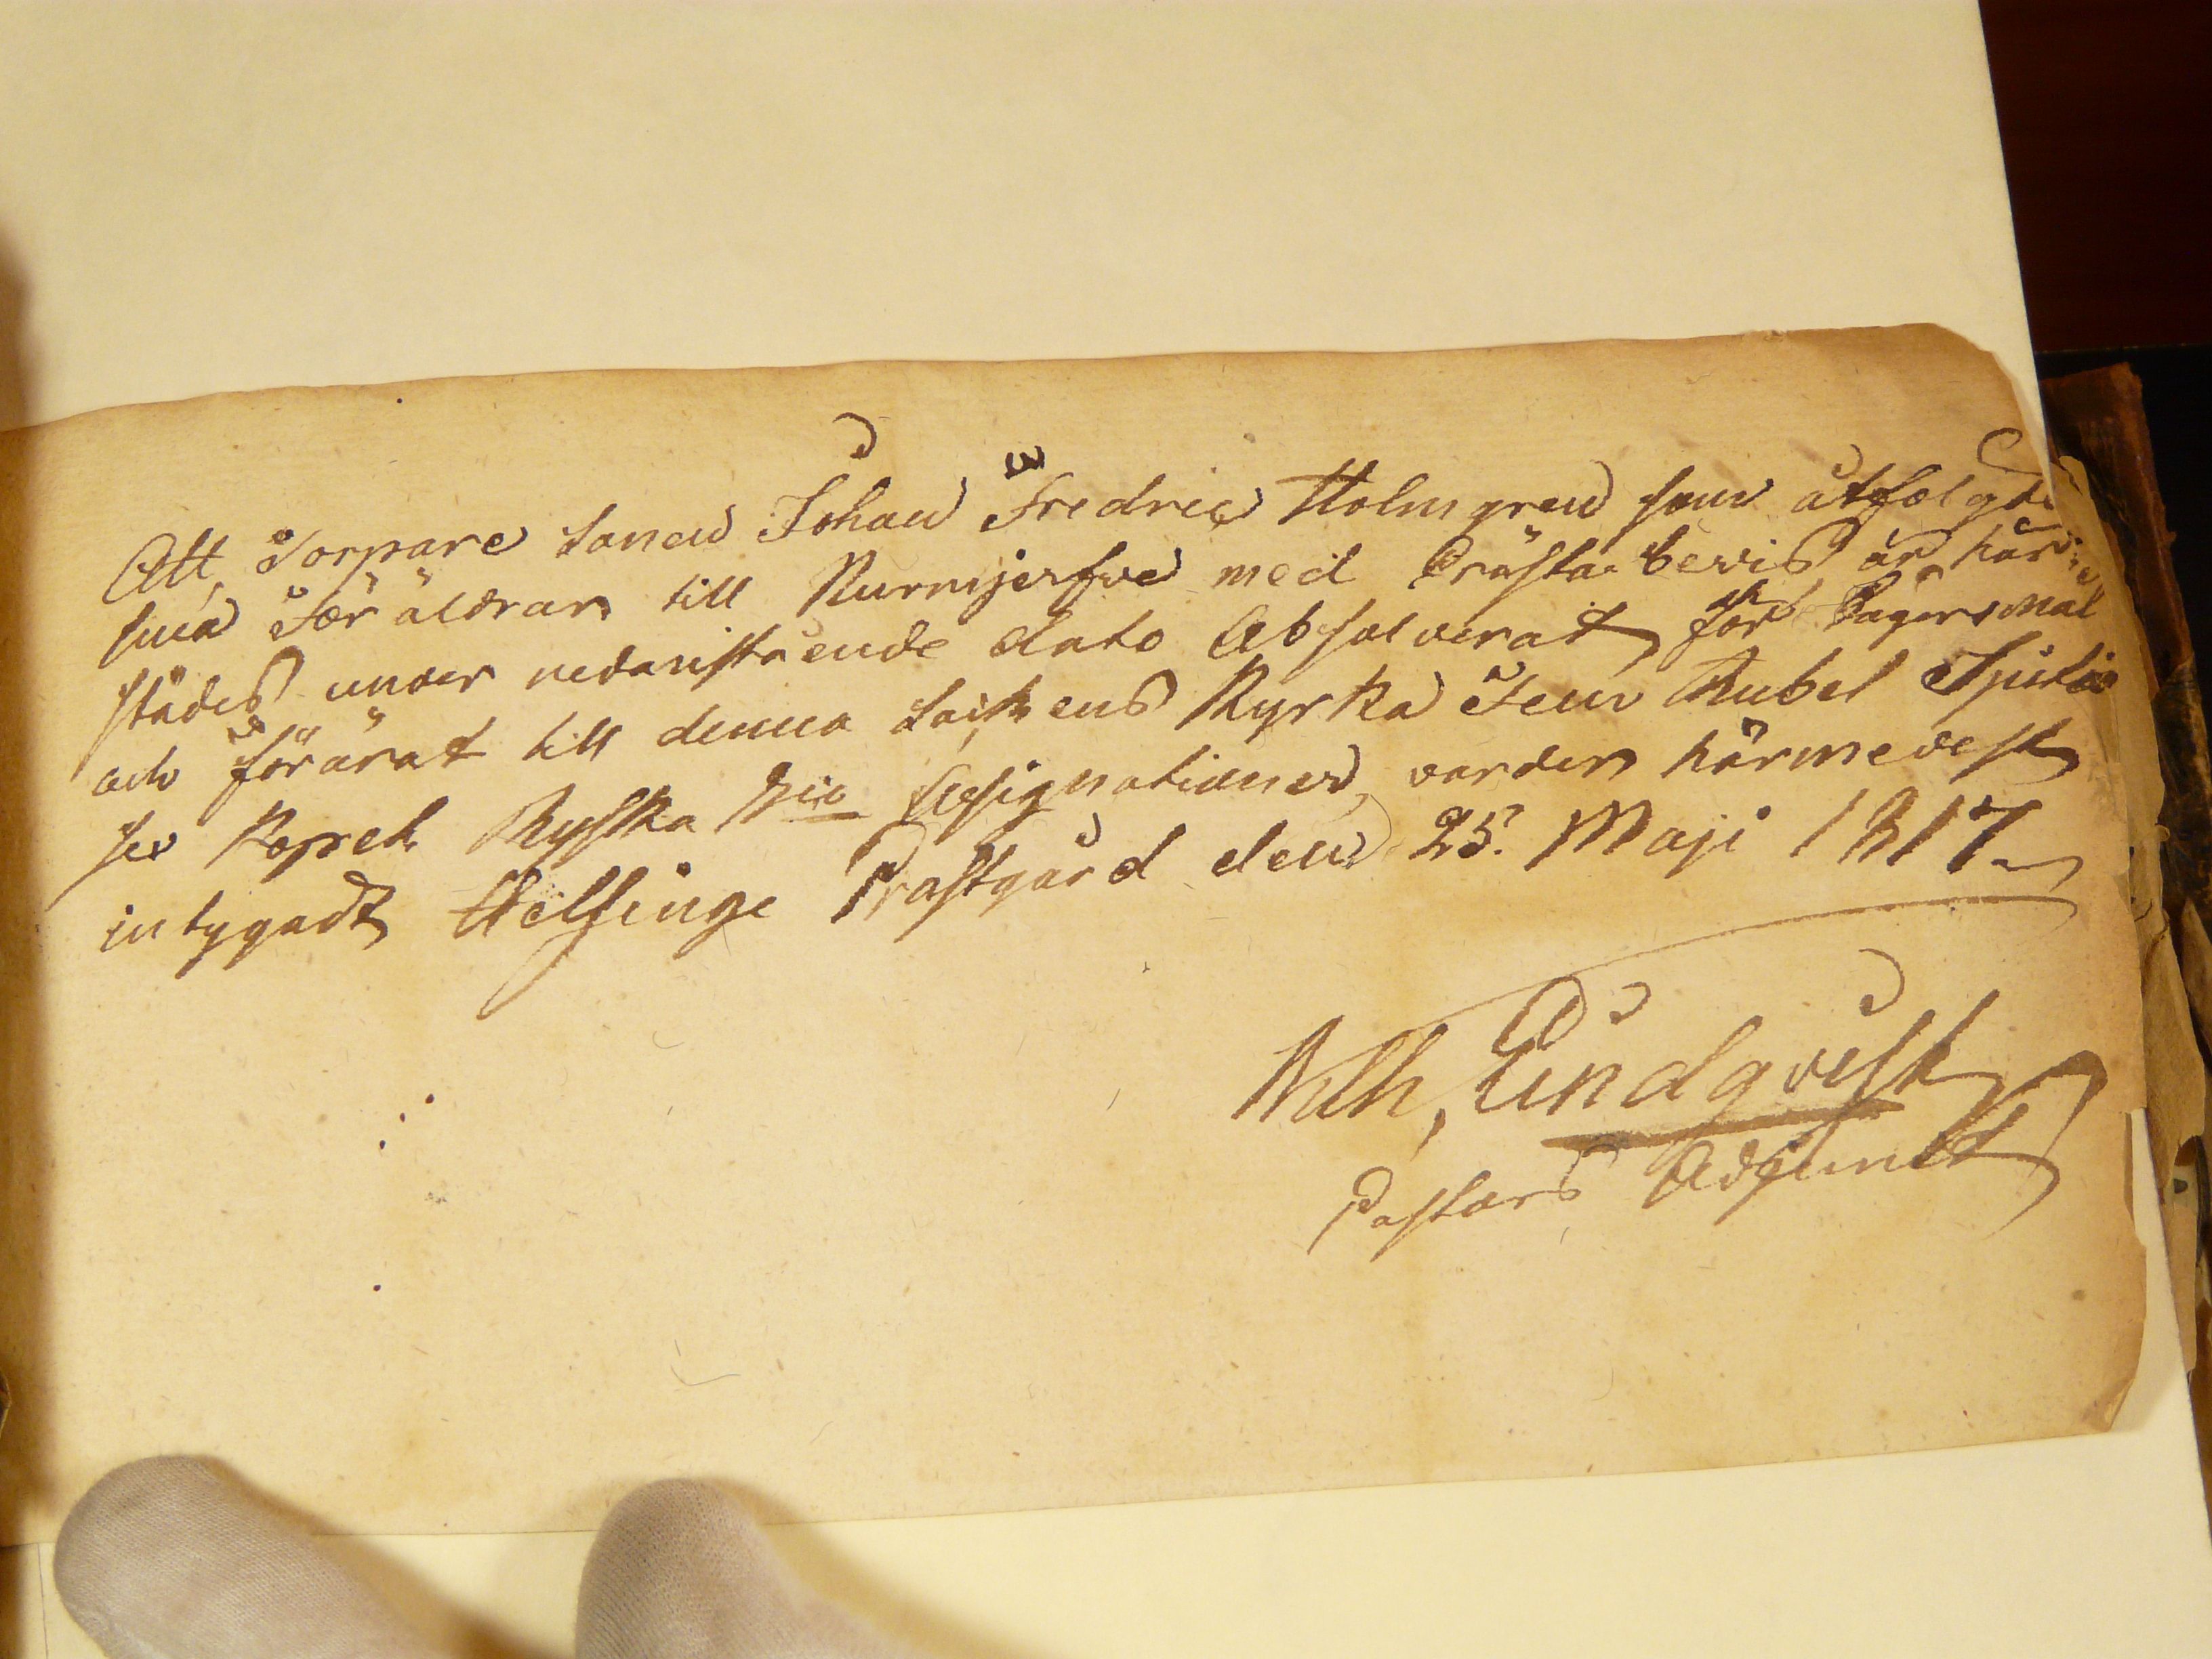 Att Torpare Sonen Johan Fredric Holmgren som åtfölgde
sina Föräldrar till Nurmijerfve med Prästa bevis är här
städes under nedanstående dato Absolverat för Lägersmål
och förärat till denna Kyrka Fem Rubel
sex Kopek Ryska Assignationer, varder härmedest
intygadt Helsinge Prästgård den 25. Maji 1817
Wilh, Lindqvist
Pastors Adjunct